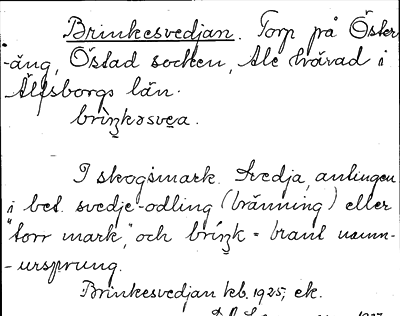 Brinkesvedjan. Torp på Öster-
-äng, Östad socken, Ale härad i
Älfsborgs län.
brìŋkəsvea.
I skogsmark. Svedja, antingen
i bet. svedje-odling (bränning) eller
"torr mark", och bríŋk = brant namn-
-ursprung.
Brinkesvedjan kb. 1925, ek.